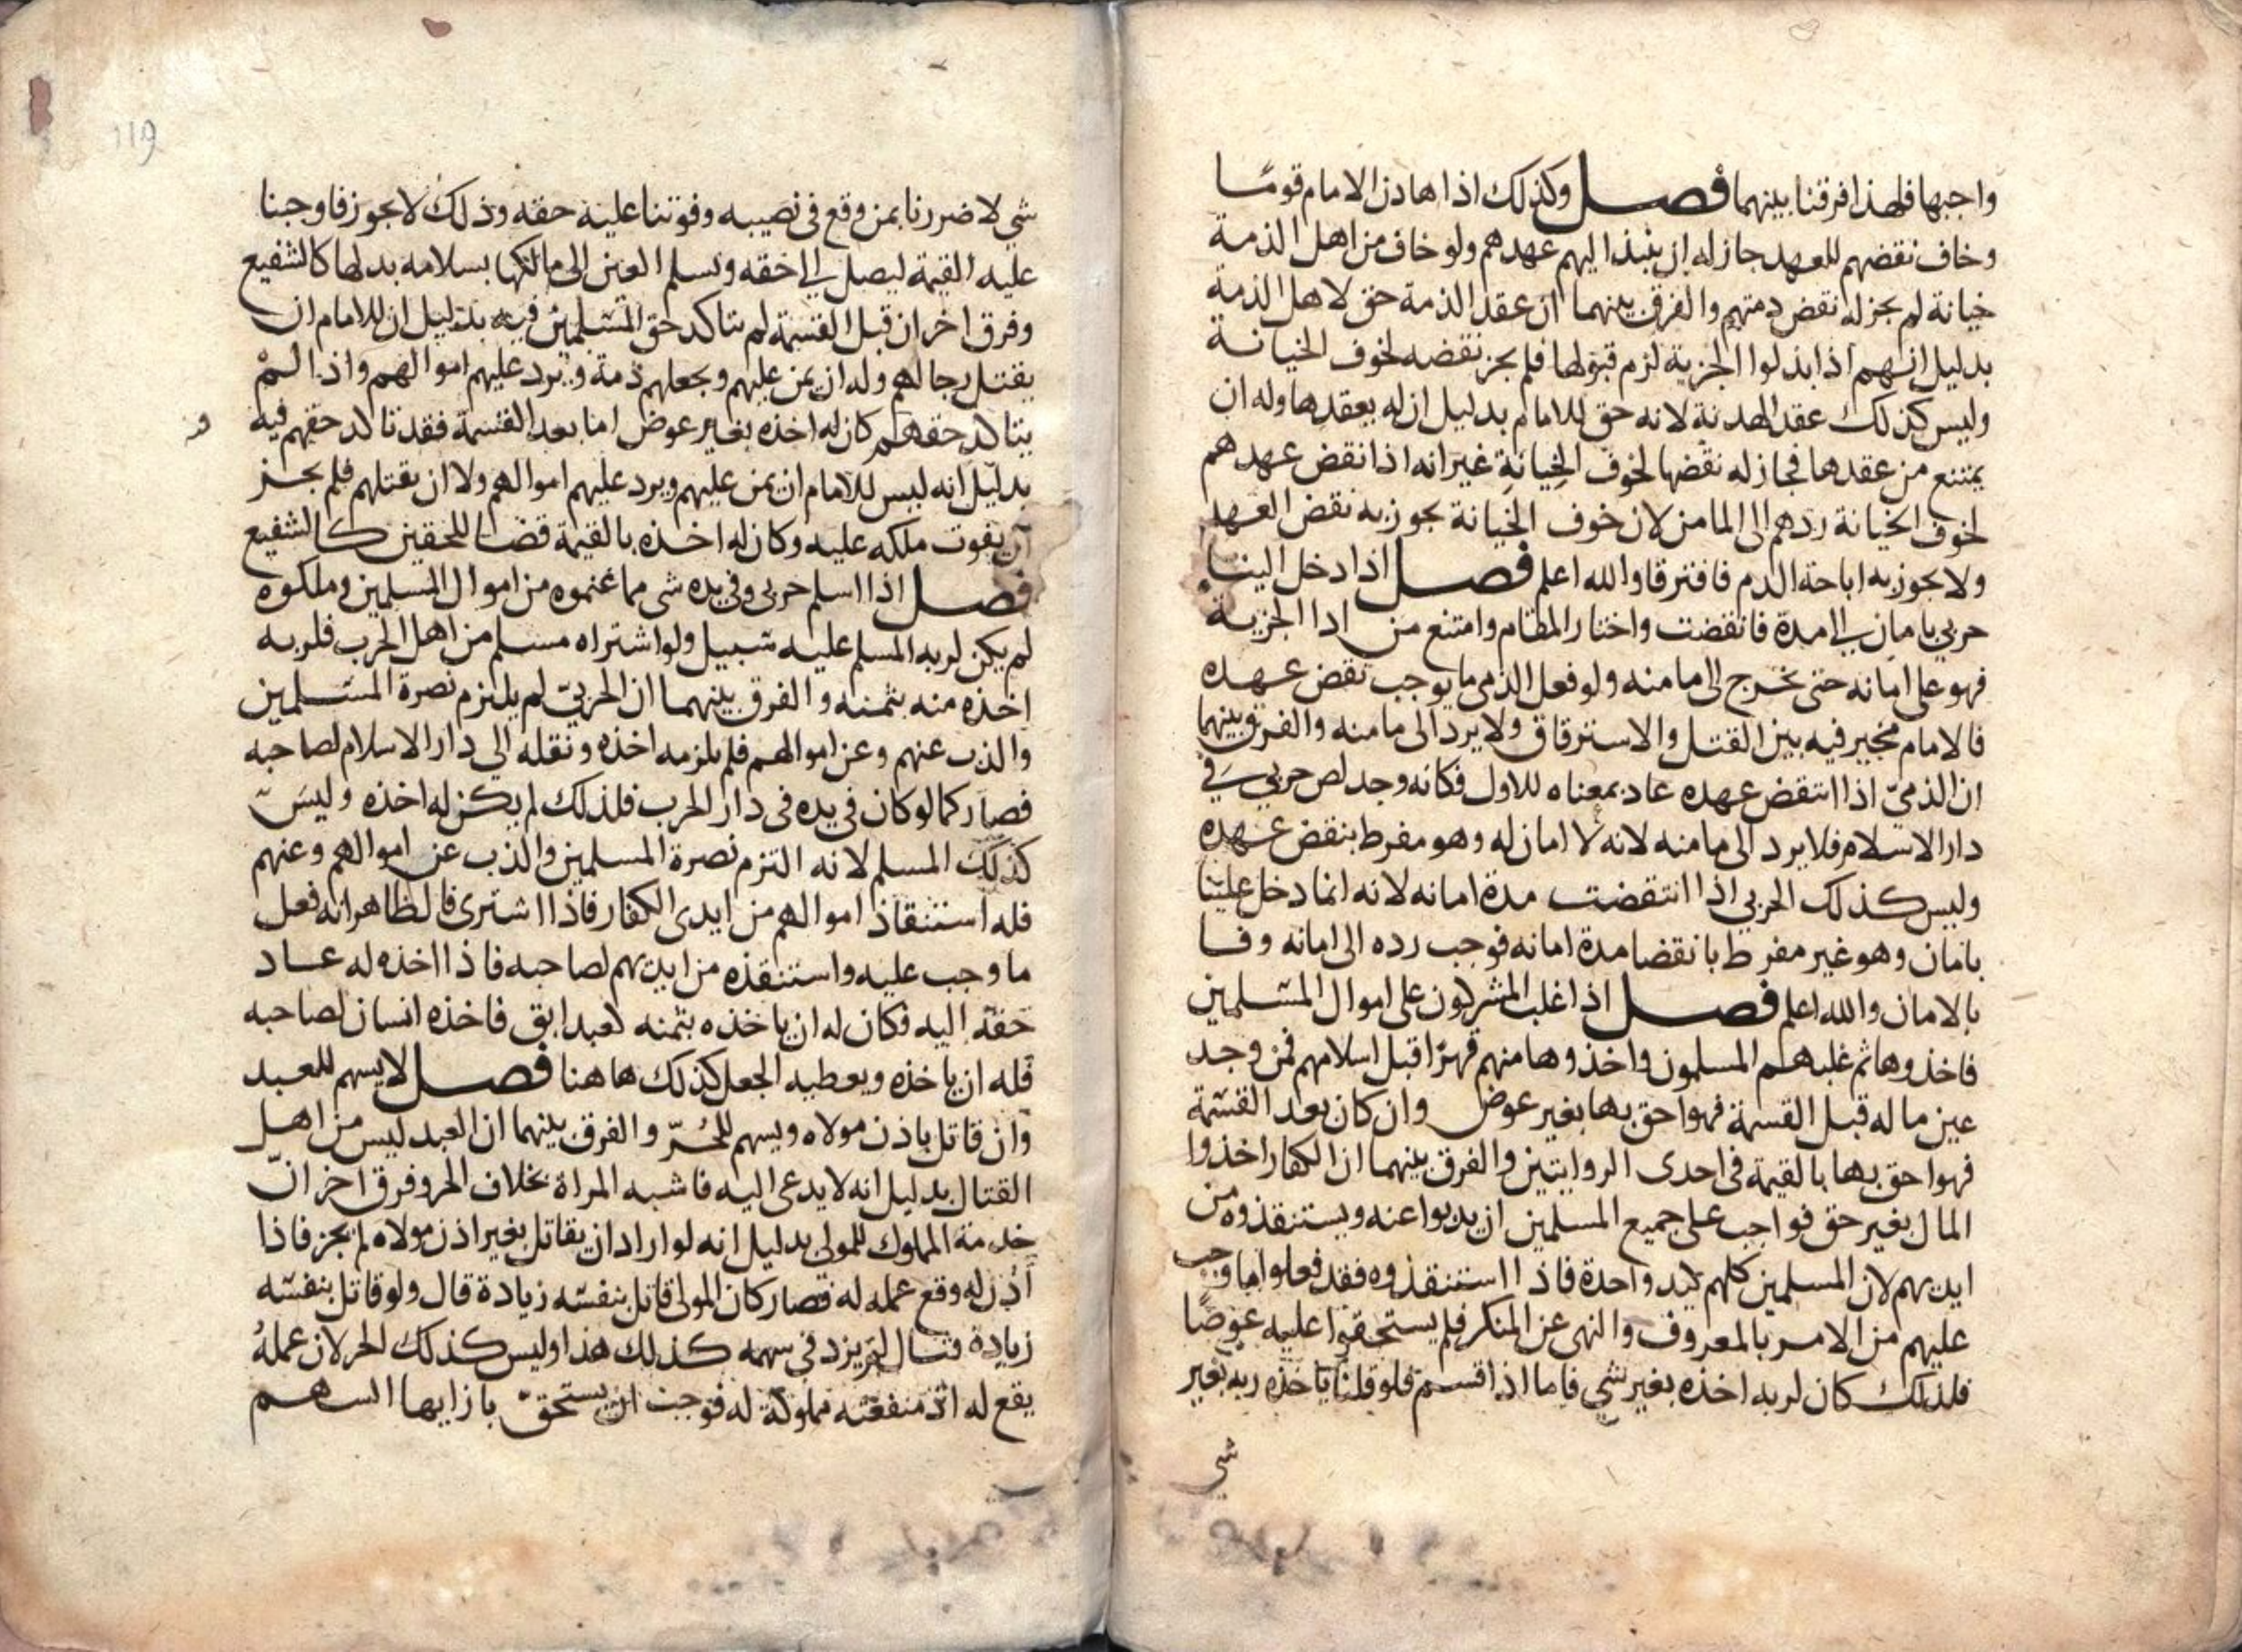 واجبها فلهذا فرقنا بينهما فصل وكذلك اذا هادن الامام قومًا
وخاف نقضهم للعهد جاز له ان ينبذ اليهم عهدهم ولو خاف من اهل الذمة
خيانة لم يجز له نقض ذمتهم والفرق بينهما ان عقد الذمة حق لاهل الذمة
بدليل انهم اذا بذلوا الجزية لزم قبولها فلم يجز نقضه لخوف الخيانة
وليس كذلك عقد الهدنة لانه حق للامام بدليل ان له يعقدها وله ان
يمتنع من عقدها فجاز له نقضها لخوف الخيانة غير انه اذا نقض عهدهم
لخوف الخيانة ردهم الى المامن لان خوف الخيانة يجوز به نقض العهد
ولا يجوز به اباحة الدم فافترقا والله اعلم فصل اذا دخل الينا
حربي بامان الى مدة فانقضت واختار المقام وامتنع من ادا الجزية
فهو على امانه حتى يخرج الى مامنه ولو فعل الذمي ما يوجب نقض عهده
فالامام مخير فيه بين القتل والاسترقاق ولا يرد الى مامنه والفرق بينهما
ان الذميّ اذا انتقض عهده عاد بمعناه للاول فكانه وجد لص حربي في
دار الاسلام فلا يرد الى مامنه لانه لا امان له وهو مفرط بنقض عهده
وليس كذلك الحربي اذا انتقضت مدة امانه لانه انما دخل علينا
بامان وهو غير مفرط بانقضا مدة امانه فوجب رده الى امانه وفا
بالامان والله اعلم فصل اذا غلب المشركون على اموال المسلمين
فاخذوها ثم غلبهم المسلمون واخذوها منهم قهرًا قبل اسلامهم فمن وجد
عين ماله قبل القسمة فهو احق بها بغير عوض وان كان بعد القسمة
فهو احق بها بالقيمة في احدى الروايتين والفرق بينهما ان الكفار اخذوا
المال بغير حق فواجب على جميع المسلمين ان يذبوا عنه ويستنقذوه من
ايديهم لان المسلمين كلهم كيد واحدة فاذا استنقذوه فقد فعلوا ما وجب
عليهم من الامر بالمعروف والنهى عن المنكر فلم يستحقوا عليه عوضًا
فلذلك كان لربه اخذه بغير شي فاما اذا قسم فلو قلنا ياخذه ربه بغير
شي
شي لا ضررنا بمن وقع في نصيبه وفوتنا عليه حقه وذلك لا يجوز فاوجبنا
عليه القيمة ليصل الى حقه ويسلم العين الى مالكها بسلامه بدلها كالشفيع
وفرق اخر ان قبل القسمة لم يتاكد حق المسلمين فيه بدليل ان للامام ان
يقتل رجالهم وله ان يمن عليهم ويجعلهم ذمة ويرد عليهم اموالهم واذا لم
يتاكد حقهم كان له اخذه بغير عوض اما بعد القسمة فقد تاكد حقهم فيه
بدليل انه ليس للامام ان يمن عليهم ويرد عليهم اموالهم ولا ان يقتلهم فلم يجز
ان يفوت ملكه عليه وكان له اخذه بالقيمة قضا للحقين كالشفيع
فصل اذا اسلم حربي وفي يده شي مما غنموه من اموال المسلمين وملكوه
لم يكن لربه المسلم عليه سبيل ولو اشتراه مسلم من اهل الحرب فلربه
اخذه منه بثمنه والفرق بينهما ان الحربيّ لم يلتزم نصرة المسلمين
والذب عنهم وعن اموالهم فلم يلزمه اخذه ونقله الى دار الاسلام لصاحبه
فصار كما لو كان في يده في دار الحرب فلذلك لم يكن له اخذه وليس
كذلك المسلم لانه التزم نصرة المسلمين والذب عن اموالهم وعنهم
فله استنقاذ اموالهم من ايدي الكفار فاذا اشترى فالظاهر انه فعل
ما وجب عليه واستنقذه من ايديهم لصاحبه فاذا اخذه له عاد
حقه اليه فكان له ان ياخذه بثمنه كعبد ابق فاخذه انسان لصاحبه
فله ان ياخذه ويعطيه الجعل كذلك هاهنا فصل لا يسهم للعبد
وان قاتل باذن مولاه ويسهم للحُرّ والفرق بينهما ان العبد ليس من اهل
القتال بدليل انه لا يدعى اليه فاشبه المراة بخلاف الحر وفرق اخر انّ
خدمة المملوك للمولى بدليل انه لو اراد ان يقاتل بغير اذن مولاه لم يجز فاذا
أذن له وقع عمله له فصار كان المولى قاتل بنفسه زيادة قال ولو قاتل بنفسه
زيادة قتال لم يزد في سهمه كذلك هذا وليس كذلك الحر لان عمله
يقع له اذ منفعته مملوكة له فوجب ان يستحقّ بازايها السهم
119